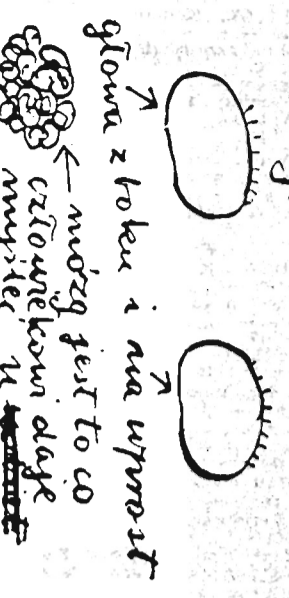 głowa z boku i na wprost
mózg jest to co
człowiekowi daje
myśleć u